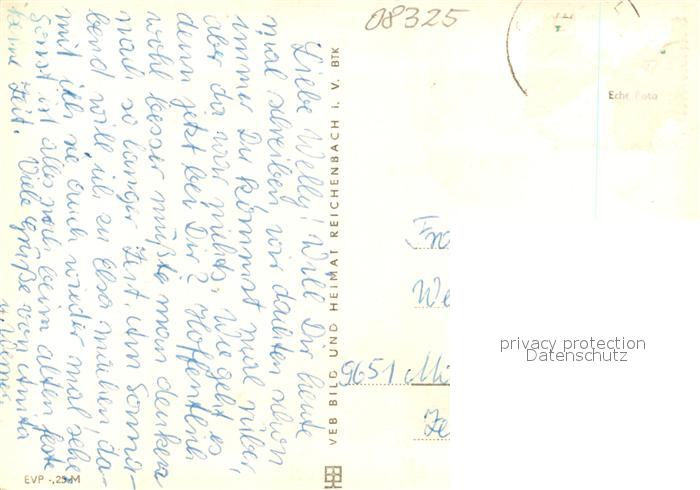 Liebe Welly! Will Dir heute
mal schreiben, wir dachten schon
immer Du kommst mal rüber,
aber da war nichts. Wie geht es
denn jetzt bei Dir? Hoffentlich
wohl besser müßte man denken
nach so langer Zeit. Am Sonna-
bend will ich zu Elsa machen da-
mit ich sie auch wieder mal sehe
Sonst ist alles noch beim alten
keine Zeit. Viele Grüße von Anita
VEB BILD UND HEIMAT REICHENBACH i. V. BTK
EVP -,25 M
08325
Echt Foto
Fra
We
9651 Mü
privacy protection
Datenschutz